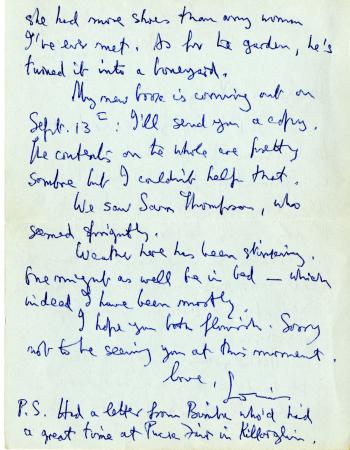 she had more shoes than any woman
I've ever met. As for the garden, he's
turned it into a boneyard.
My new book is coming out on
Sept. 13th: I'll send you a copy.
The contents on the whole are pretty
sombre but I couldn't help that.
We saw Sam Thompson, who
seemed sprightly.
Weather here has been stinking.
One might as well be in bed — which
indeed I have been mostly.
I hope you both flourish. Sorry
not to be seeing you at this moment.
love, Louis
P.S. Had a letter from Bimba who'd had
a great time at Puck Fair in Killorglin.